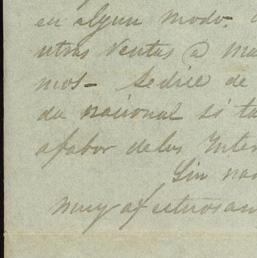 en algun modo.
utras ventas @ ma
mos- Se dice de
da nacional si ta
afabor de los Inter
Sin na
muy afectuosam